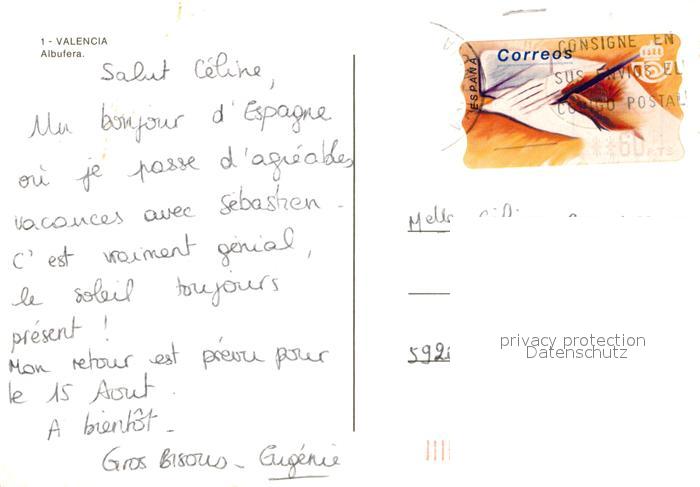 1 - VALENCIA
Albufera.
Salut Céline,
Un bonjour d'Espagne
où je passe d'agréables
vacances avec Sébastien -
C'est vraiment génial,
le soleil toujours
présent !
Mon retour est prévu pour
le 15 Aout.
A bientôt -
Gros Bisous - Eugénie
Correos
ESPAÑA
CONSIGNE EN
SUS ENVIOS EL
CODIGO POSTAL
**60 PTS
Melle
592
privacy protection
Datenschutz